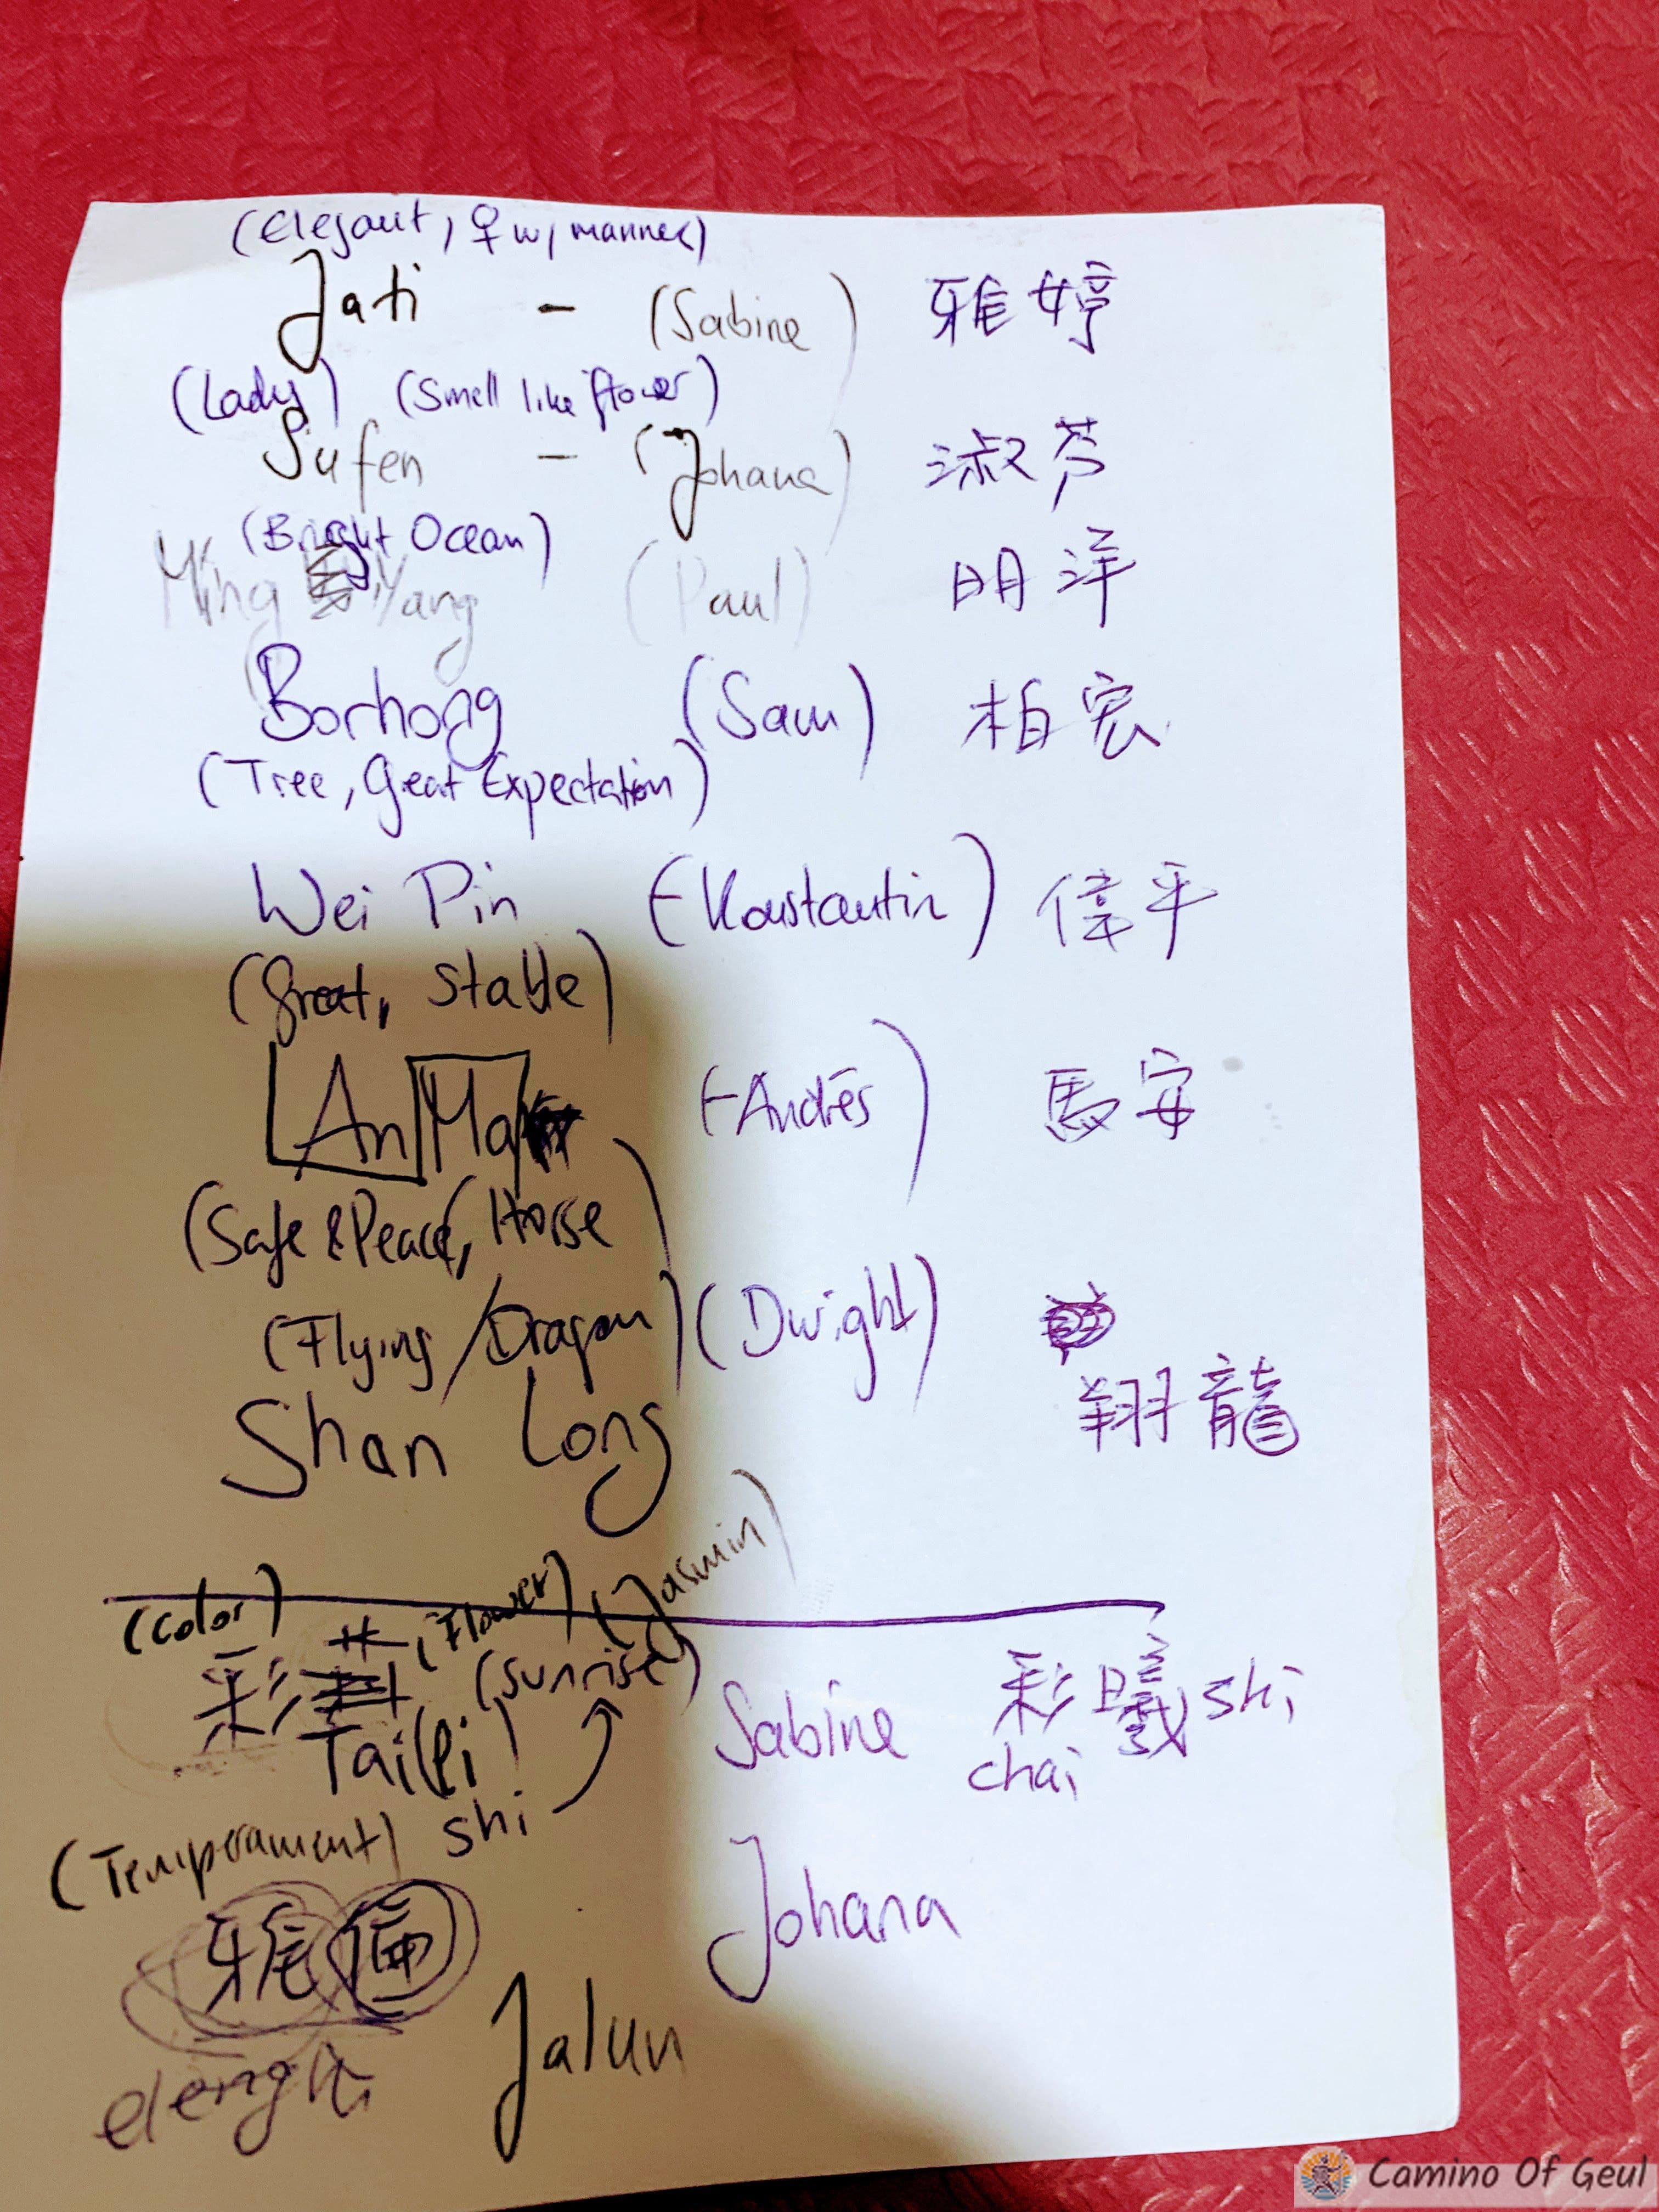 (elegant, ♀ w/ manner)
Jati - (Sabine) 雅婷
(Lady) (Smell like flower)
Sufen - (Johana) 淑芬
(Bright Ocean)
Ming Yang (Paul) 明洋
Borhong (Sam) 柏宏
(Tree, Great Expectation)
Wei Pin (Konstantin) 偉平
(Great, Stable)
An Ma (Andrés) 馬安
(Safe & Peace, Horse)
(Flying / Dragon) (Dwight)
Shan Long 翔龍
(Jasmin)
(Color) (Flower)
彩 (Sunrise) Sabine 彩曦 shi
Tai chai
shi
(Temperament)
雅 Johana
Jalun